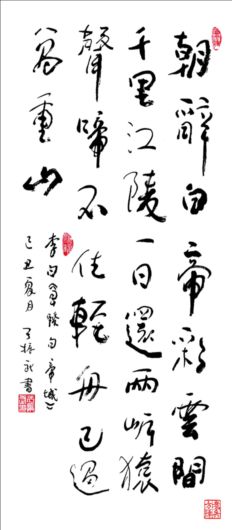 朝辭白帝彩雲間
千里江陵一日還兩岸猿
聲啼不住輕舟已過
萬重山
李白早發白帝城
己丑夏月 書